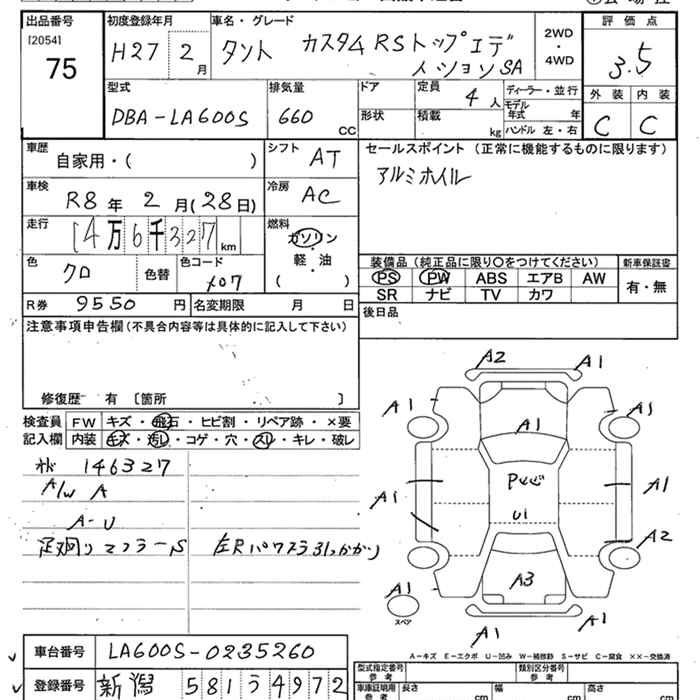 出品番号 初度登録年月 車名・グレード 2WD・4WD 評価点
[2054]
75 H27 2月 タント カスタムRSトップエディションSA 3.5
型式 排気量 ドア 定員 4人 ディーラー・並行 外装 内装
DBA-LA600S 660CC 形状 積載 kg モデル年式 年 C C
ハンドル 左・右
車歴 自家用・( ) シフト AT セールスポイント (正常に機能するものに限ります)
アルミホイル
車検 R8年 2月(28日) 冷房 AC
走行 14万6千327km 燃料 ガソリン・軽油 ( )
色 クロ 色替 色コード X07
装備品 (純正品に限り○をつけてください) 新車保証書
PS PW ABS エアB AW 有・無
SR ナビ TV カワ
R券 9550円 名変期限 月 日 後日品
注意事項申告欄 (不具合内容等は具体的に記入して下さい)
修復歴 有 〔箇所 〕
検査員記入欄 FW キズ・飛石・ヒビ割・リペア跡・×要
内装 キズ・汚し・コゲ・穴・スレ・キレ・破レ
146327
A/W A
A-U
足廻りマフラーS 左Rパワスラ引っかかり
A2 A1
A1 A1 A1
A1 U1 A1
A2
A1 A3
スペア
A1 A1
A-キズ E-エクボ U-凹み W-補修跡 S-サビ C-腐食 XX-交換済
車台番号 LA600S-0235260
登録番号 新潟 581 う 4972
型式指定番号 参考 類別区分番号 参考
車庫証明用 参考 長さ cm 幅 cm 高さ cm